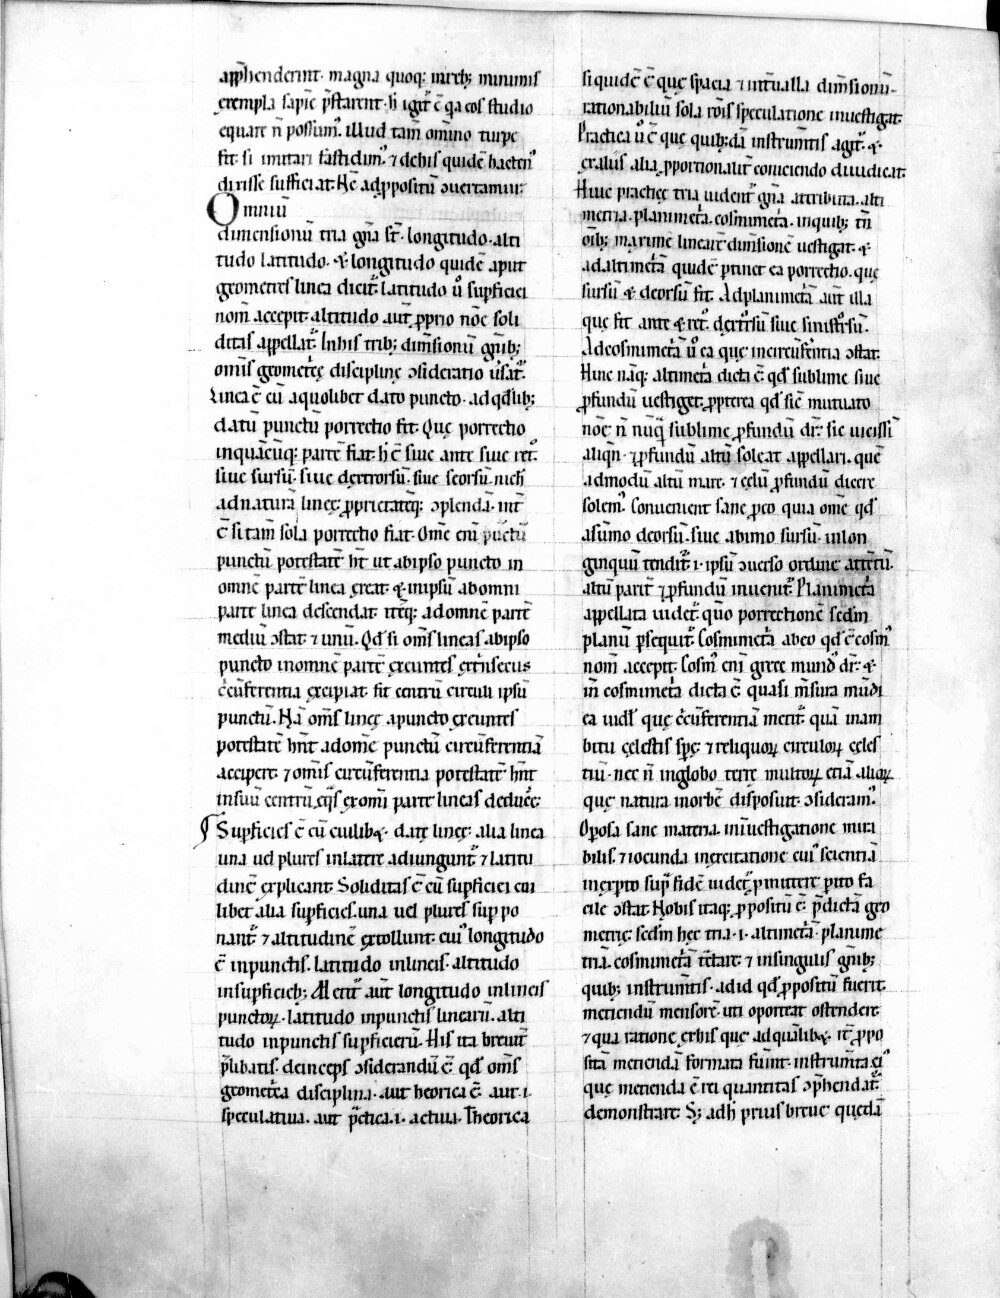 app̄henderint· magna quoq; inreb; minimis
exempla sapiē p̄starent· h̄ igit̄ ē q̄a eos studio
equare n̄ possum᷒· illud tam̄ om̄ino turpe
fit· si imitari fastidim᷒· ⁊ debis quidē hacten᷒
dixisse sufficiat· Hēc adp̱positū ↄuertamur·
Omniū
dimensionū tria gn̄a st̄· longitudo· alti
tudo latitudo· & longitudo quidē aput
geometres linea dicit̄· latitudo ů supficiei
nom̄ accepit· altitudo aut̄ p̱prio nōe soli
ditas appellat̄· Inhis trib; dim̄sionū gn̄ib;
om̄is geometrię disciplinę ↄsideratio ůsat̄·
Linea ē cū aquolibet dato puncto· ad qđlib;
datū punctū porrectio fit· Quę porrectio
inquācūq; partē fiat· h̄ ē siue ante siue ret᷒·
siue sursū· siue dextrorsū· siue seorsū· nich̄
adnaturā linęę p̱prietatēq; ↄplendā· int̄
ē si tam̄ sola porrectio fiat· Om̄e eni punctū
punctū potestatē h̄t ut abipso puncto in
omnē partē linea exeat· & inipsū abomni
parte linea descendat· itēq; adomnē partē
mediū ↄstat· ⁊ unū· Qđ si om̄s lineas abipso
puncto inomnē partē exeuntes ext̄nsecus
c̄cūferentia excipiat· fit centrū circuli ipsū
punctū· Nā om̄s linęę apuncto exeuntes
potestatē hn̄t adom̄e punctū circūferentiā
accipere· ⁊ omīs circūferentia potestatē hn̄t
insuū centrū eq̄s exomī parte lineas deduce͛·
¶Supficies ē cū cuilib&· datę linęę· alia linea
una uel plures inlatere adiungunt̄ ⁊ latitu
dinē explicant· Soliditas ē cū supficiei cui
libet alia supficies· una uel plures suppo
nant̄ ⁊ altitudinē extollunt· cui᷒ longitudo
ē inpunctis· latitudo inlineis· altitudo
insupficieb; Metit̄ aut̄ longitudo inlineis
punctoꝝ· latitudo inpunctis linearū· alti
tudo inpunctis supficierū· His ita breuit̄
p̄libatis· deinceps ↄsiderandū ē· qđ om̄s
geomet̄ca disciplina· aut theorica ē· aut ·i·
speculatiua· aut p̄ctica ·i· actiua· Theorica
siquidē ē quę spacia ⁊ int̄ualla dim̄sionū
rationabiliū sola rōis speculatione inuestigat·
Practica ů ē quę quib;dā instrum̄tis agit̄· &
exaliis alia p̱portionalit̄ coniciendo diiudicat·
Huic practicę tria uident̄ gn̄a attributa· alti
metria· planimet͛a· cosmimet͛a· inquib; tn̄
oīb; maxime linearē dim̄sionē uestigat· &
adaltimet͛ā quidē p̱tinet ea porrectio· quę
sursū & deorsū fit· Adplanimet͛ā aut̄ illa
quę fit ante & ret᷒· dext͛orsū siue sinist͛orsū·
Adcosmimet͛ā ů ea quę incircūferentia ↄstat·
Hinc nāq; altimet͛a dicta ē· qđ sublime siue
p̱fundū uestiget· p̱pterea qđ sic̄ mutuato
nōe n̄ nūq̄ sublime p̱fundū dr̄· sic uicissī
aliqn̄· ⁊ p̱fundū altū soleat appellari· quē
admodū altū mare· ⁊ celū p̱fundū dicere
solem᷒· Conuenient̄ sane p̱eo quia om̄e qđ
asūmo deorsū· siue abimo sursū· inlon
ginquū tendit̄· i· ipsū ↄuerso ordine attētū·
altū parit̄ ⁊ p̱fundū inuenit̄· Planimet͛a
appellata uidet̄· quo porrectionē scđm
planū p̱sequit̄· Cosmimet͛a abeo qđ ē cosm᷒
nom̄ accepit· Cosm᷒ eni grece mund᷒ dr̄· &
in̄ cosmimet͛a dicta ē quasi m̄sura mūdi
ea uidł quę c̄cūferentiā metit̄· quā inam
bitu cęlestis sp̄ę· ⁊ reliquoꝝ circuloꝝ cęles
tiū· nec n̄ inglobo terrę multoꝝ etiā alioꝝ
quę natura inorbē disposuit· ↄsideram᷒·
Operosa sane materia· iniuestigatione mira
bilis· ⁊ iocunda inexercitatione cui᷒ scientiā
inexp̱to sup̱ fidē uidet̄ p̱mittere· p̱ito fa
cile ↄstat· Nobis itaq; p̱positū ē· p̄dictā geo
metrię· scđm hęc tria ·i· altimet͛ā· planime
triā· cosmimet͛ā t̄ctare· ⁊ insingulis gn̄ib;
quib; instrum̄tis· adid qđ p̱positū fuerit·
metiendū mensorē· uti oporteat ostendere·
⁊ qua ratione exhis quę adqualib&· rē p̱po
sitā metiendā formata fūint· instrum̄ta· ei᷒
quę metienda ē rei quantitas ↄp̄hendat̄
demonstrare· S; adh̄ prius breuē quędā